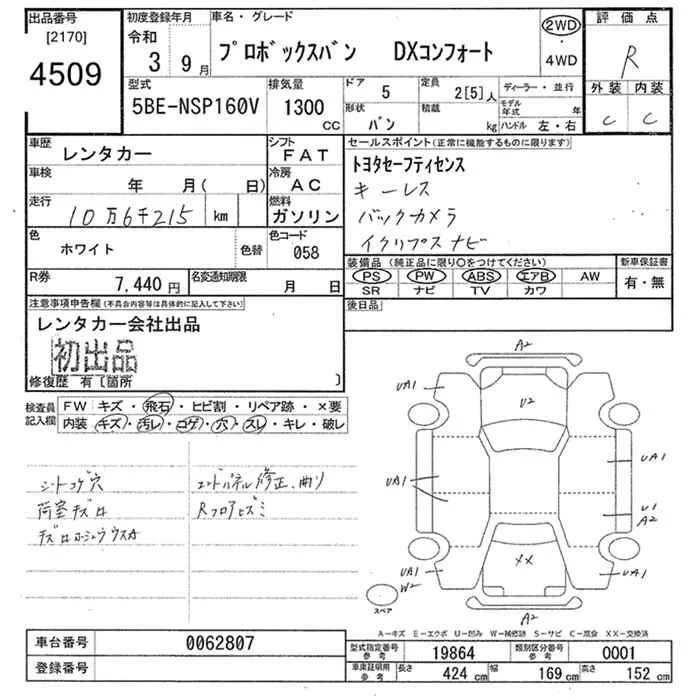 出品番号 初度登録年月 車名・グレード 2WD 評価点
[2170] 令和
4509 3 9月 プロボックスバン DXコンフォート 4WD R
型式 排気量 ドア 5 定員 2[5]人 ディーラー・並行 外装 内装
5BE-NSP160V 1300 CC 形状 バン 積載 kg モデル年式 年 C C
ハンドル 左・右
車歴 レンタカー シフト FAT セールスポイント(正常に機能するものに限ります)
車検 年 月( 日) 冷房 AC トヨタセーフティセンス
走行 10万6千215 km 燃料 ガソリン キーレス
バックカメラ
色 ホワイト 色替 色コード 058 イクリプスナビ
R券 7,440円 名変通知期限 月 日 装備品(純正品に限り〇をつけてください) 新車保証書
PS PW ABS エアB AW 有・無
SR ナビ TV カワ
注意事項申告欄(不具合内容等は具体的に記入して下さい) 後日品
レンタカー会社出品
初出品
修復歴 有〔箇所 〕
検査員記入欄 FW キズ・飛石・ヒビ割・リペア跡・×要
内装 キズ・汚レ・コゲ・穴・スレ・キレ・破レ
シートコゲ穴 エンドパネル修正、曲リ
荷室キズ Rフロアヒズミ
A2
UA1 U2
UA1 UA1
U1
A2
UA1 XX UA1
W2
スペア A2
A-キズ E-エクボ U-凹み W-補修跡 S-サビ C-腐食 XX-交換済
車台番号 0062807 型式指定番号 参考 19864 類別区分番号 参考 0001
登録番号 車庫証明用 参考 長さ 424 cm 幅 169 cm 高さ 152 cm